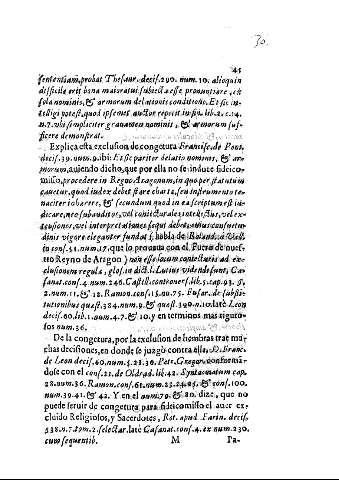 30.
45
sententiam, probat Thesaur. decis. 290. num. 10. alioquin
difficile erit bona maioratui subiecta esse pronuntiare, ex
sola nominis, & armorum delationis conditione. Et sic in-
telligi potest, quod ipsemet auctor repetit in fin. lib. 2. c. 14.
n. 7. vbi simpliciter grauamen nominis, & armorum suf-
ficere demonstrat.
Explica esta exclusion de congetura Francisc. de Pont.
decis. 39. num. 9. ibi: Et sic pariter delatio nominis, & ar-
morum, auiendo dicho, que por ella no se induce fideico-
misso, procedere in Regno Aragonum, in quo per statutum
cauetur, quod index debet stare charta, seu instrumento te-
naciter inhaerere, & secundum quod in ea scriptum est in-
dicare, nec subauditus, vel coniecturae, intellectus, vel ex-
tensiones, vel interpretationes sequi debet,
dinis vigore eleganter fundat, habla de
in cons. 31. num. 17. que lo pronuntia con el Fuero de nues-
tro Reyno de Aragon) non esse locum coniecturis ad ex-
clusionem regula, glos. in dict. l. Lucius videndi sunt, Ca-
sanat. cons. 4. num. 246. Castill. controuers. lib. 5. cap. 93. §.
2. num. 11. & 12. Ramon. cons. 15. nu. 75. Fusar. de substi-
tutionibus quaest. 324. num. 9. & quaest. 329. n. 10. late Leon
decis. 60. lib. 1. num. 4. 7. & 10. y en terminos mas riguro-
sos num. 36.
De la congetura, por la exclusion de hembras trae mu-
chas decisiones, en donde se juzgò contra ella, D. Franc.
de Leon decis. 60. num. 5. 22. 36. Petr. Gregor. conforman-
dose con el cons. 21. de Oldrad. lib. 42. Syntagmatum cap.
28. num. 36. Ramon. cons. 23. 24. 25. & cons. 100.
num. 39. 41. & 42. Y en el num. 79. & 80. dize, que no
puede seruir de congetura para fideicomisso el auer ex-
cluido Religiosos, y Sacerdotes, Rot. apud Farin. decis.
538. n. 7. tom. 2. select. lat. Casanat. cons. 4. ex num. 230.
cum sequentib.
M
Pa-